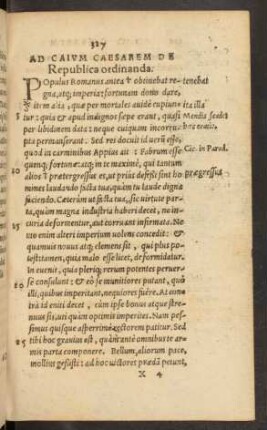 327
AD CAIVM CAESAREM DE
Republica ordinanda.
POpulus Romanus antea obtinebat re-
tenebat
gna, atq; imperia: fortunam dono dare,
item alia, quæ per mortales auidè cupiun-
ita illa
tur: quia & apud indignos sæpe erant, quasi
per libidinem data: neque cuiquam incorru-
pta permanserant. Sed res docuit id verū esse,
5
quod in carminibus Appius ait: Fabrum esse
Cic. in Parad.
quemq; fortunæ: atq; in te maximè, qui tantum
10
alios prætergressus es, ut prius defessi sint ho
prægressus
mines laudando facta tua, quàm tu laude digna
faciendo. Cæterum ut facta tua, sic uirtute par-
ta, quàm magna industria haberi decet, ne in-
curia deformentur, aut corruant infirmata. Ne-
15
mo enim alteri imperium uolens concedit: &
quamuis bonus atq; clemens sit, qui plus po-
test, tamen, quia malo esse licet, deformidatur.
In euenit, quia pleriq; rerum potentes peruer-
se consulunt: & eò se munitiores putant, quò
20
illi, quibus imperitant, nequiores fuêre. At contra
id eniti decet, cùm ipse bonus atque stre-
nuus sis, uti quàm optimis imperites. Nam pes-
simus quisque asperrimè rectorem patitur. Sed
tibi hoc grauius est, quàm ante omnibus te ar-
25
mis parta componere. Bellum, aliorum pace,
mollius gessisti: ad hoc uictores prædā petunt,
X 4